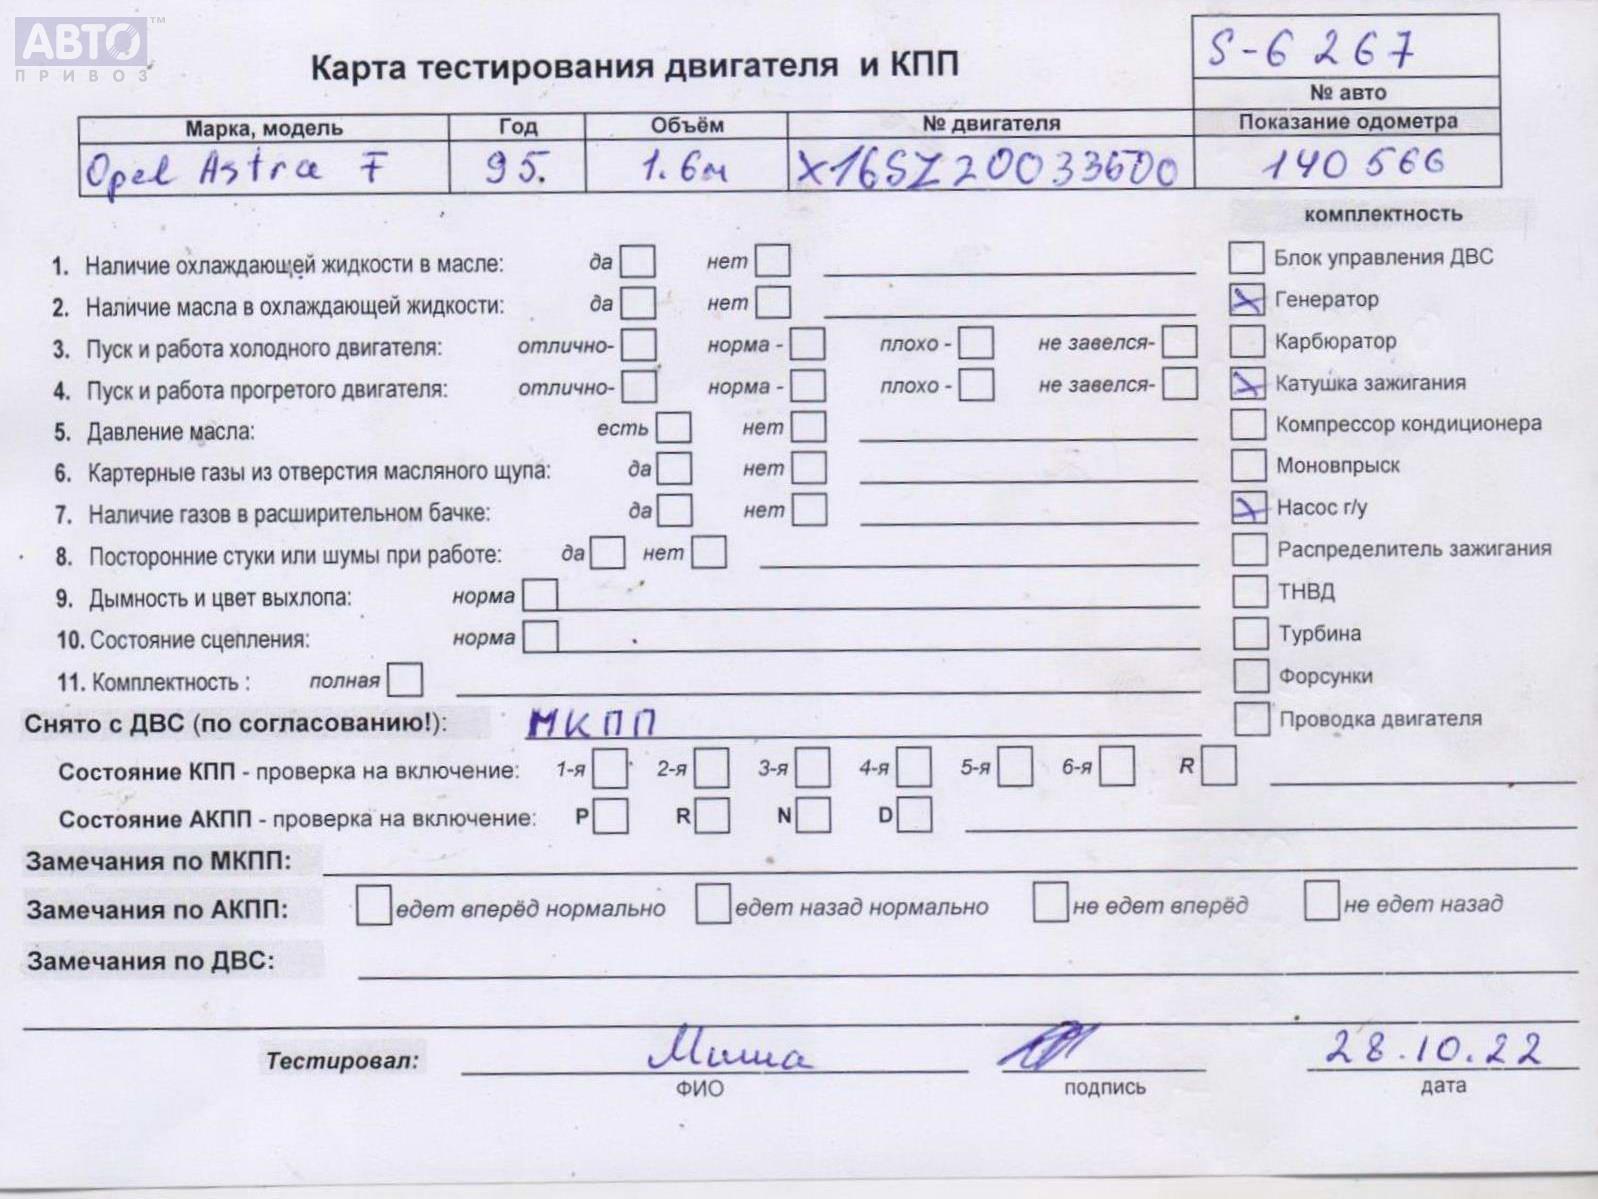 АВТО™
ПРИВОЗ
Карта тестирования двигателя и КПП
S-6267
№ авто
Марка, модель Год Объём № двигателя Показание одометра
Opel Astra F 95. 1.6м X16SZ20033600 140566
комплектность
1. Наличие охлаждающей жидкости в масле: да нет
Блок управления ДВС
2. Наличие масла в охлаждающей жидкости: да нет
Генератор
3. Пуск и работа холодного двигателя: отлично- норма - плохо - не завелся-
Карбюратор
4. Пуск и работа прогретого двигателя: отлично- норма - плохо - не завелся-
Катушка зажигания
5. Давление масла: есть нет
Компрессор кондиционера
6. Картерные газы из отверстия масляного щупа: да нет
Моновпрыск
7. Наличие газов в расширительном бачке: да нет
Насос г/у
8. Посторонние стуки или шумы при работе: да нет
Распределитель зажигания
9. Дымность и цвет выхлопа: норма
ТНВД
10. Состояние сцепления: норма
Турбина
11. Комплектность : полная
Форсунки
Снято с ДВС (по согласованию!): МКПП
Проводка двигателя
Состояние КПП - проверка на включение: 1-я 2-я 3-я 4-я 5-я 6-я R
Состояние АКПП - проверка на включение: P R N D
Замечания по МКПП:
Замечания по АКПП: едет вперёд нормально едет назад нормально не едет вперёд не едет назад
Замечания по ДВС:
Тестировал: Миша 28.10.22
ФИО подпись дата